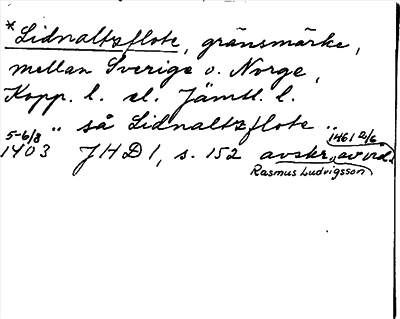 *Lidnaltzflote, gränsmärke,
mellan Sverige o. Norge,
Kopp. l. el. Jämtl. l.
"så Lidnaltzflote"
5-6/8 1461 2/6
1403 JHD 1, s. 152 avskr. av vid.
Rasmus Ludvigsson